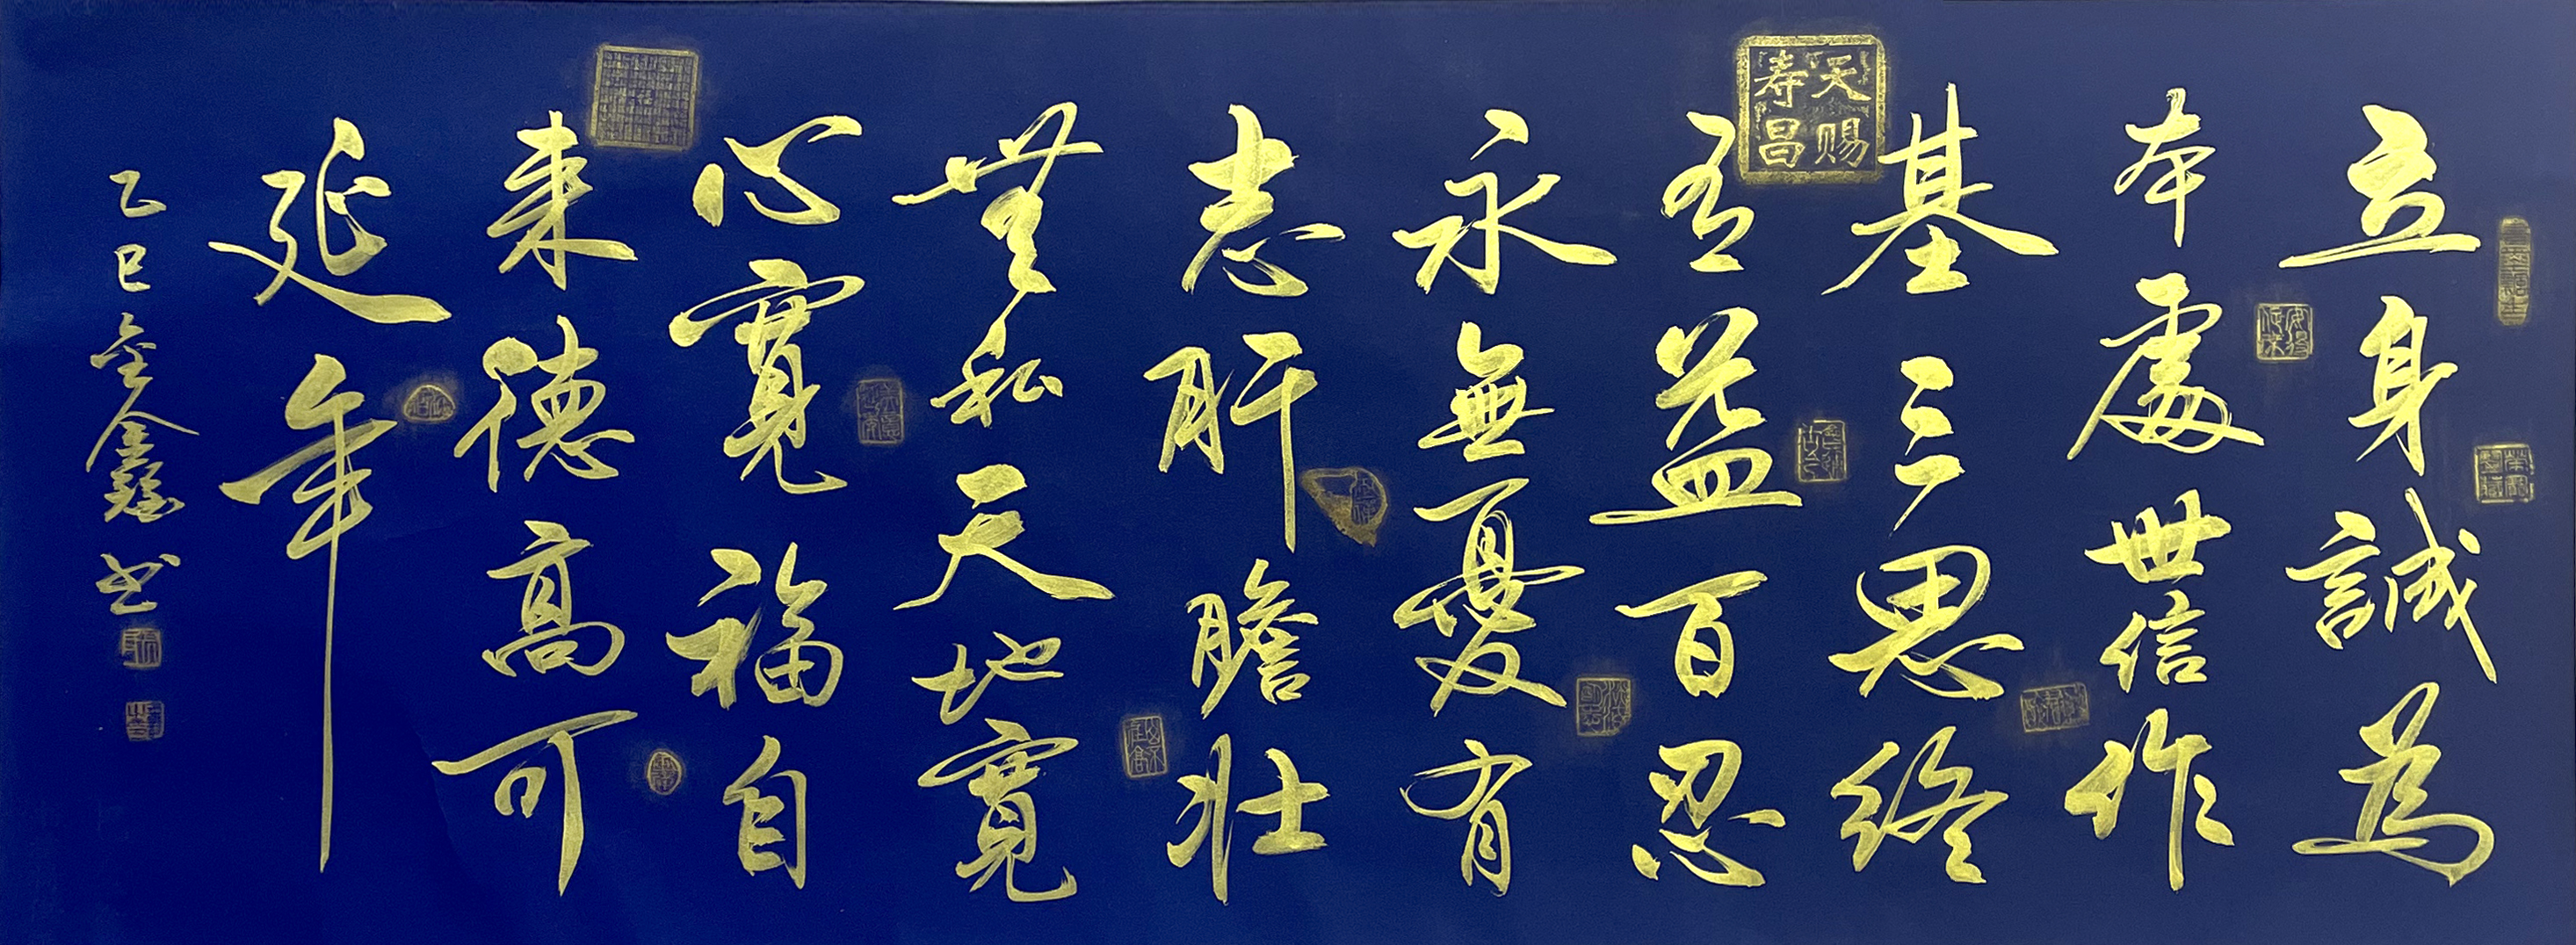 立身誠為
本處世信作
基三思終
天赐
寿昌
有益百忍
永無憂有
志肝膽壯
無私天地寬
心寬福自
来德高可
延年
乙巳鑫书